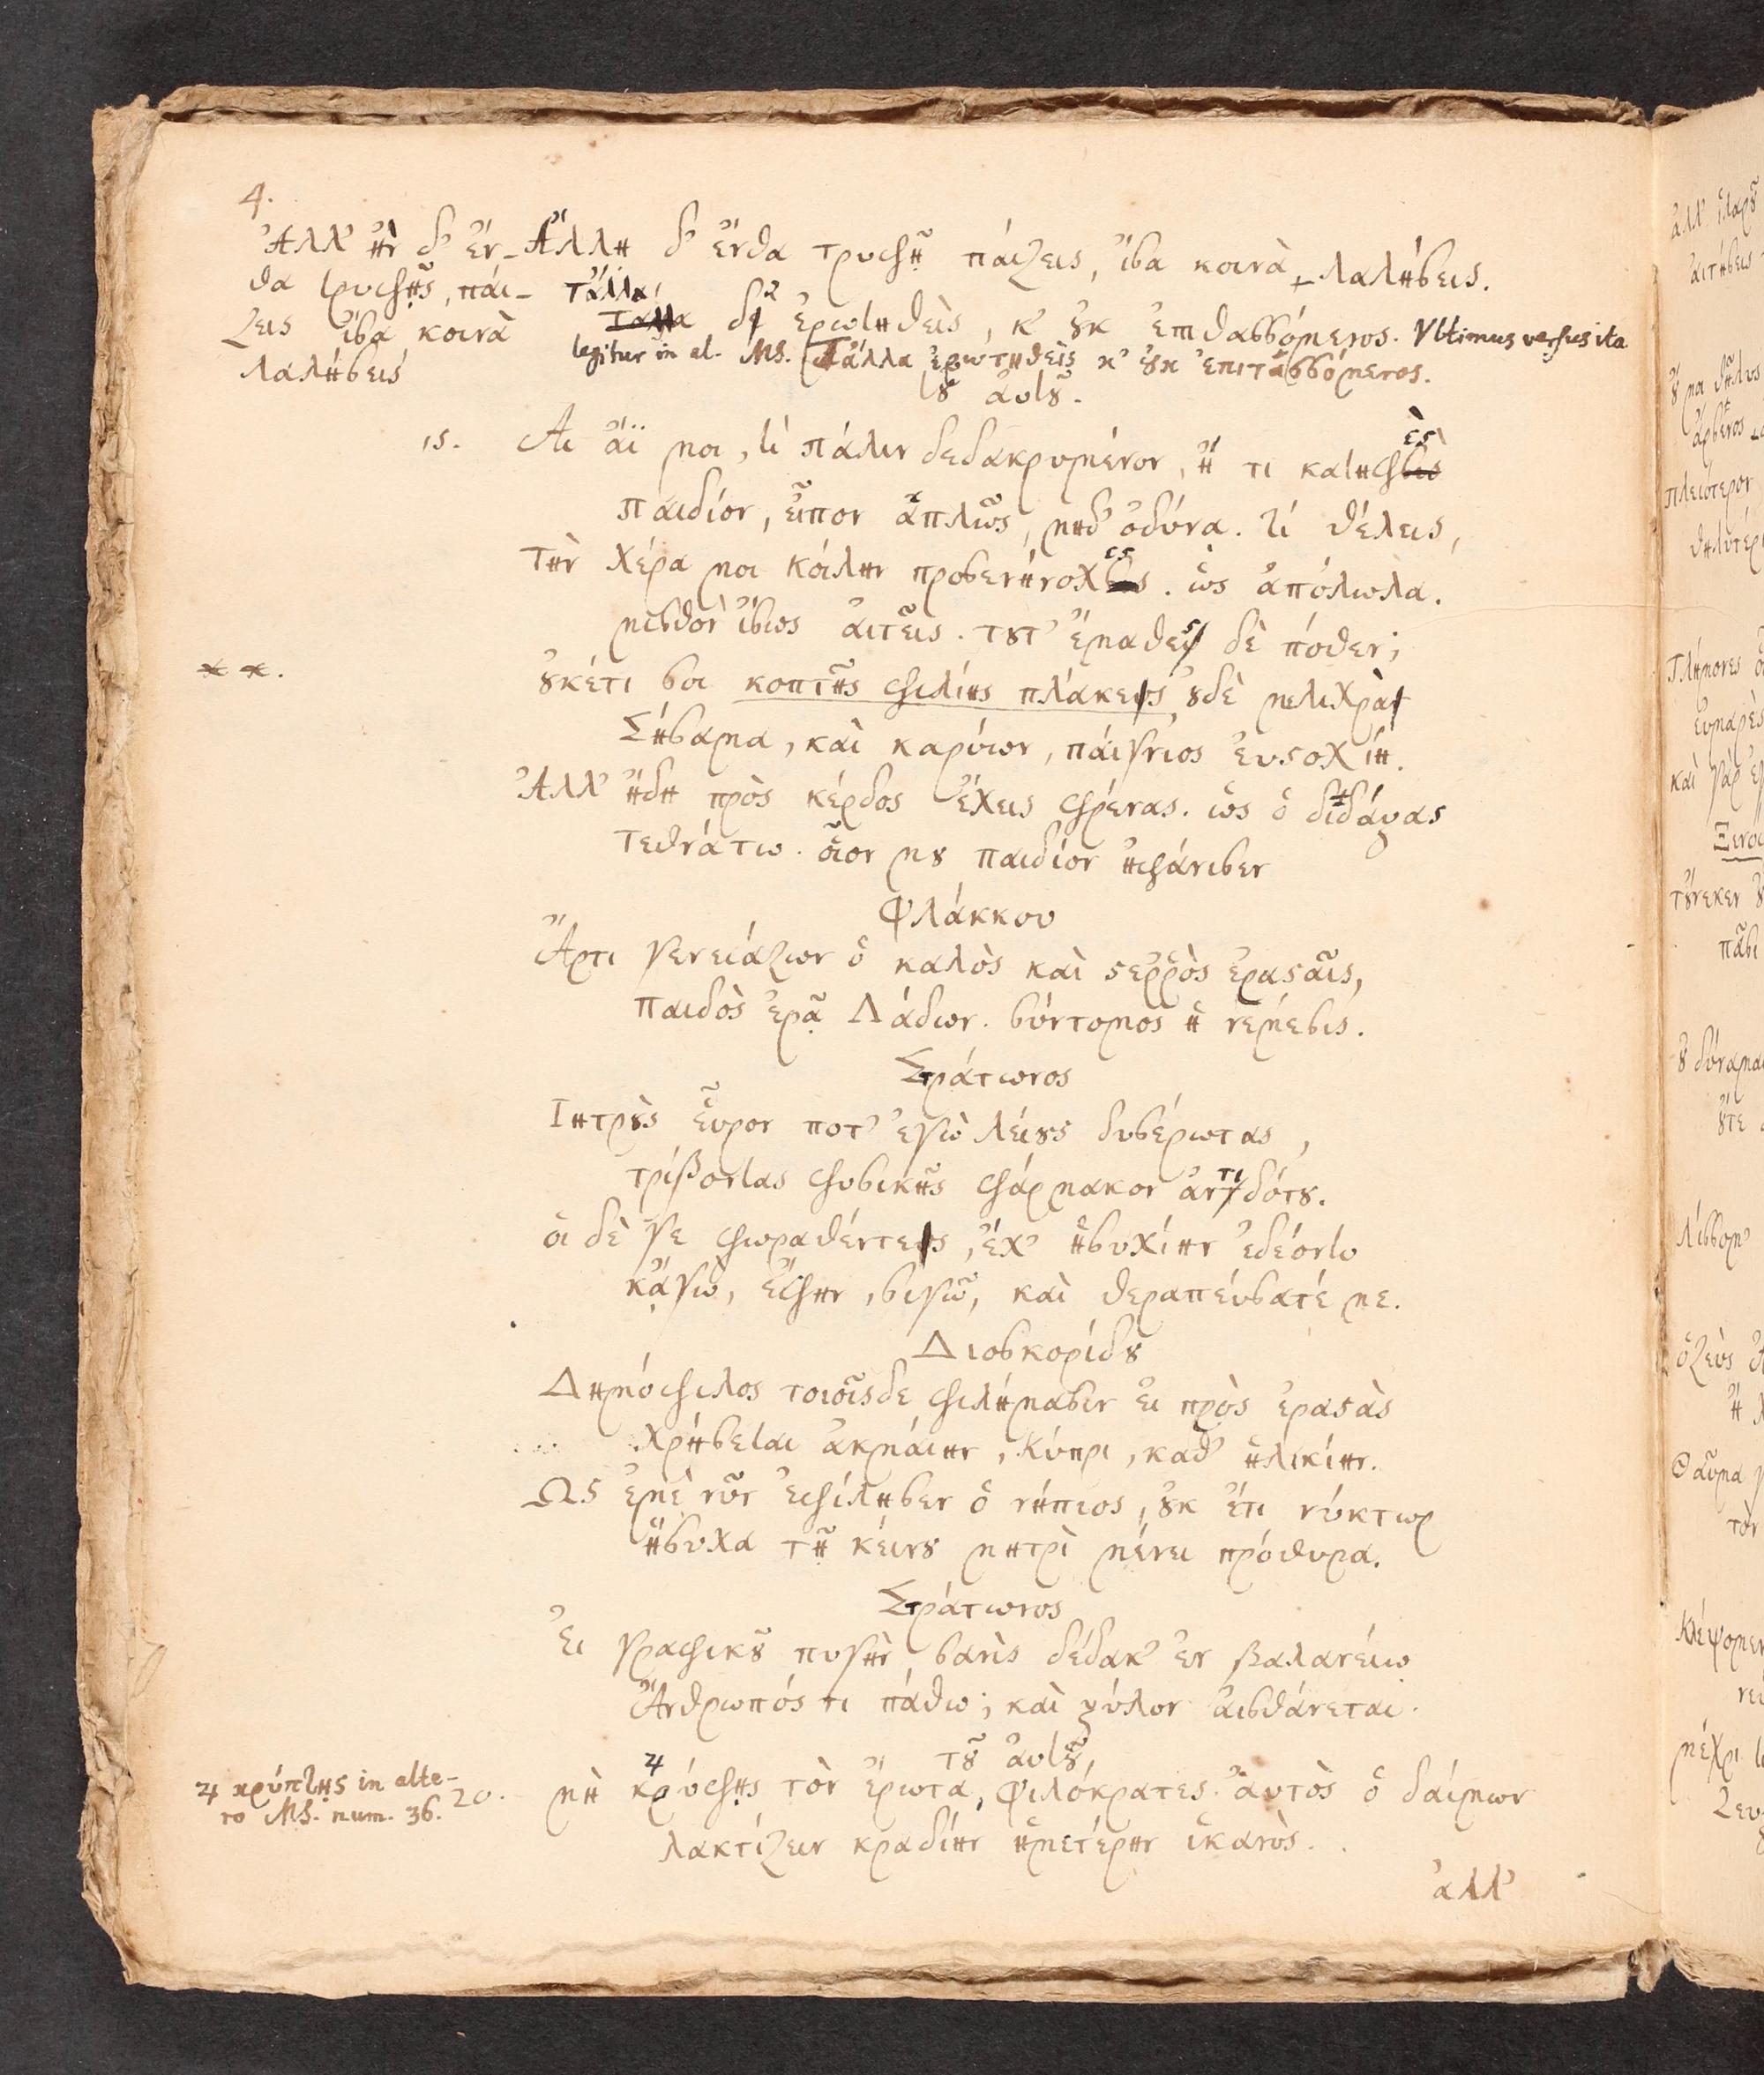 4.
Ἀλλ' ἢν δ' ἔν-
θα τρυφῇς, πάι-
ζεις ἴσα κοινὰ
λαλήσεις
Ἄλλη δ' ἔνθα τρυφῇ πάιζεις, ἴσα κοινὰ λαλήσεις.
τἄλλα
δ' ἐρωτηθεὶς, κ' ὐκ ἐπιτασσόμενος. Vltimus versus ita
legitur in al. MS. Τἄλλα ἐρωτηθεὶς κ' ὐκ ἐπιτασσόμενος.
τȣ̃ ἀυτȣ̃.
15. Αι ἄϊ μοι, τί πάλιν δεδακρυμένον, ἤ τι κατηφὲς
παιδίον, εἶπον ἁπλῶς, μηδ' ὀδύνα. τί θέλεις,
τὴν χέρα μοι κόιλην προσενήνοχες. ὡς ἀπόλωλα.
μισθὸν ἴσως ἀιτεῖς. τȣτ' ἔμαθες δὲ πόθεν;
* *.
ȣ̓κέτι σοι κοπτῆς φιλίης πλάκες ȣ̓δὲ μελιχρὰ
Σήσαμα, καὶ καρύων, πάιγνιος ἐυστοχίη.
Ἀλλ' ἤδη πρὸς κέρδος ἔχεις φρένας. ὡς ὁ διδάξας
τεθνάτω. οἷον μȣ παιδίον ἠφάνισεν
Φλάκκου
Ἄρτι γενειάζων ὁ καλὸς καὶ στερρὸς ἐρασταῖς,
παιδὸς ἐρᾷ Λάδων. σύντομος ἡ νέμεσις.
Στράτωνος
Ιητρȣ̀ς εὗρον ποτ' ἐγὼ λείȣς δυσέρωτας,
τρίβοντας φυσικῆς φάρμακον ἀντιδότȣ.
ὁι δὲ γε φωραθέντες, ἔχ' ἡσυχίην ἐδέοντο
κᾀγὼ, ἔφην, σιγῶ, καὶ θεραπέυσατέ με.
Διοσκορίδȣ
Δημόφιλος τοιοῖςδε φιλήμασιν ἐι πρὸς ἐραστὰς
χρήσεται ἀκμάιην, Κύπρι, καθ' ἡλικίην.
Ως ἐμὲ νῦν ἐφίλησεν ὁ νήπιος, ȣ̓κ ἔτι νύκτωρ
ἥσυχα τῇ κείνȣ μητρὶ μένει πρόθυρα.
Στράτωνος
Ἐι γραφικȣ̃ πυγὴν σανὶς δέδακ' ἐν βαλανείω
Ἄνθρωπός τι πάθω; καὶ ξύλον ἀισθάνεται.
τȣ̃ ἀυτȣ̃,
4 κρύπτῃς in alte-
ro MS. num. 36.
20. μὴ κρύφῃς τὸν ἔρωτα, Φιλόκρατες. ἀυτὸς ὁ δάιμων
λακτίζειν κραδίην ἡμετέρην ἱκανὸς.
ἀλλ'